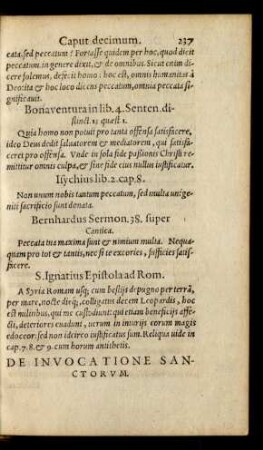 Caput decimum. 237
cata, sed peccatum? Fortasse quidem per hoc, quod dicit
peccatum. in genere dixit, & de omnibus. Sicut enim di-
cere solemus, defecit homo: hoc est, omnis humanitas à
Deo ita & hoc loco dicens peccatum, omnia peccata si-
gnificauit.
Bonauentura in lib. 4. Senten. di-
stinct. 15 quæst 1.
Quia homo non potuit pro tanta offensa satisfacere,
ideo Deus dedit saluatorem & mediatorem, qui satisfa-
ceret pro offensa. Vnde in sola fide passionis Christi re-
mittitur omnis culpa, & sine fide eius nullus iustificatur.
Isychius lib 2. cap 8.
Non unum nobis tantum peccatum, sed multa unigeni-
ti sacrificio sunt donata.
Bernhardus Sermon. 38. super
Cantica.
Peccata tua maxima sunt & nimium multa. Nequa-
quam pro tot & tantis, nec si te excories, sufficies satisf-
facere.
S. Ignatius Epistola ad Rom.
A Syria Romam usq; cum bestijs depugno per terrā,
per mare, nocte dieq;, colligatus decem Leopardis, hoc
est militibus, qui me custodiunt: qui etiam beneficijs affe-
cti, deteriores euadunt, uerum in iniurijs eorum magis
edoceor: sed non idcirco iustificatus sum. Reliqua uide in
cap. 7. 8. & 9. cum horum antithetis.
DE INVOCATIONE SAN-
CTORVM.